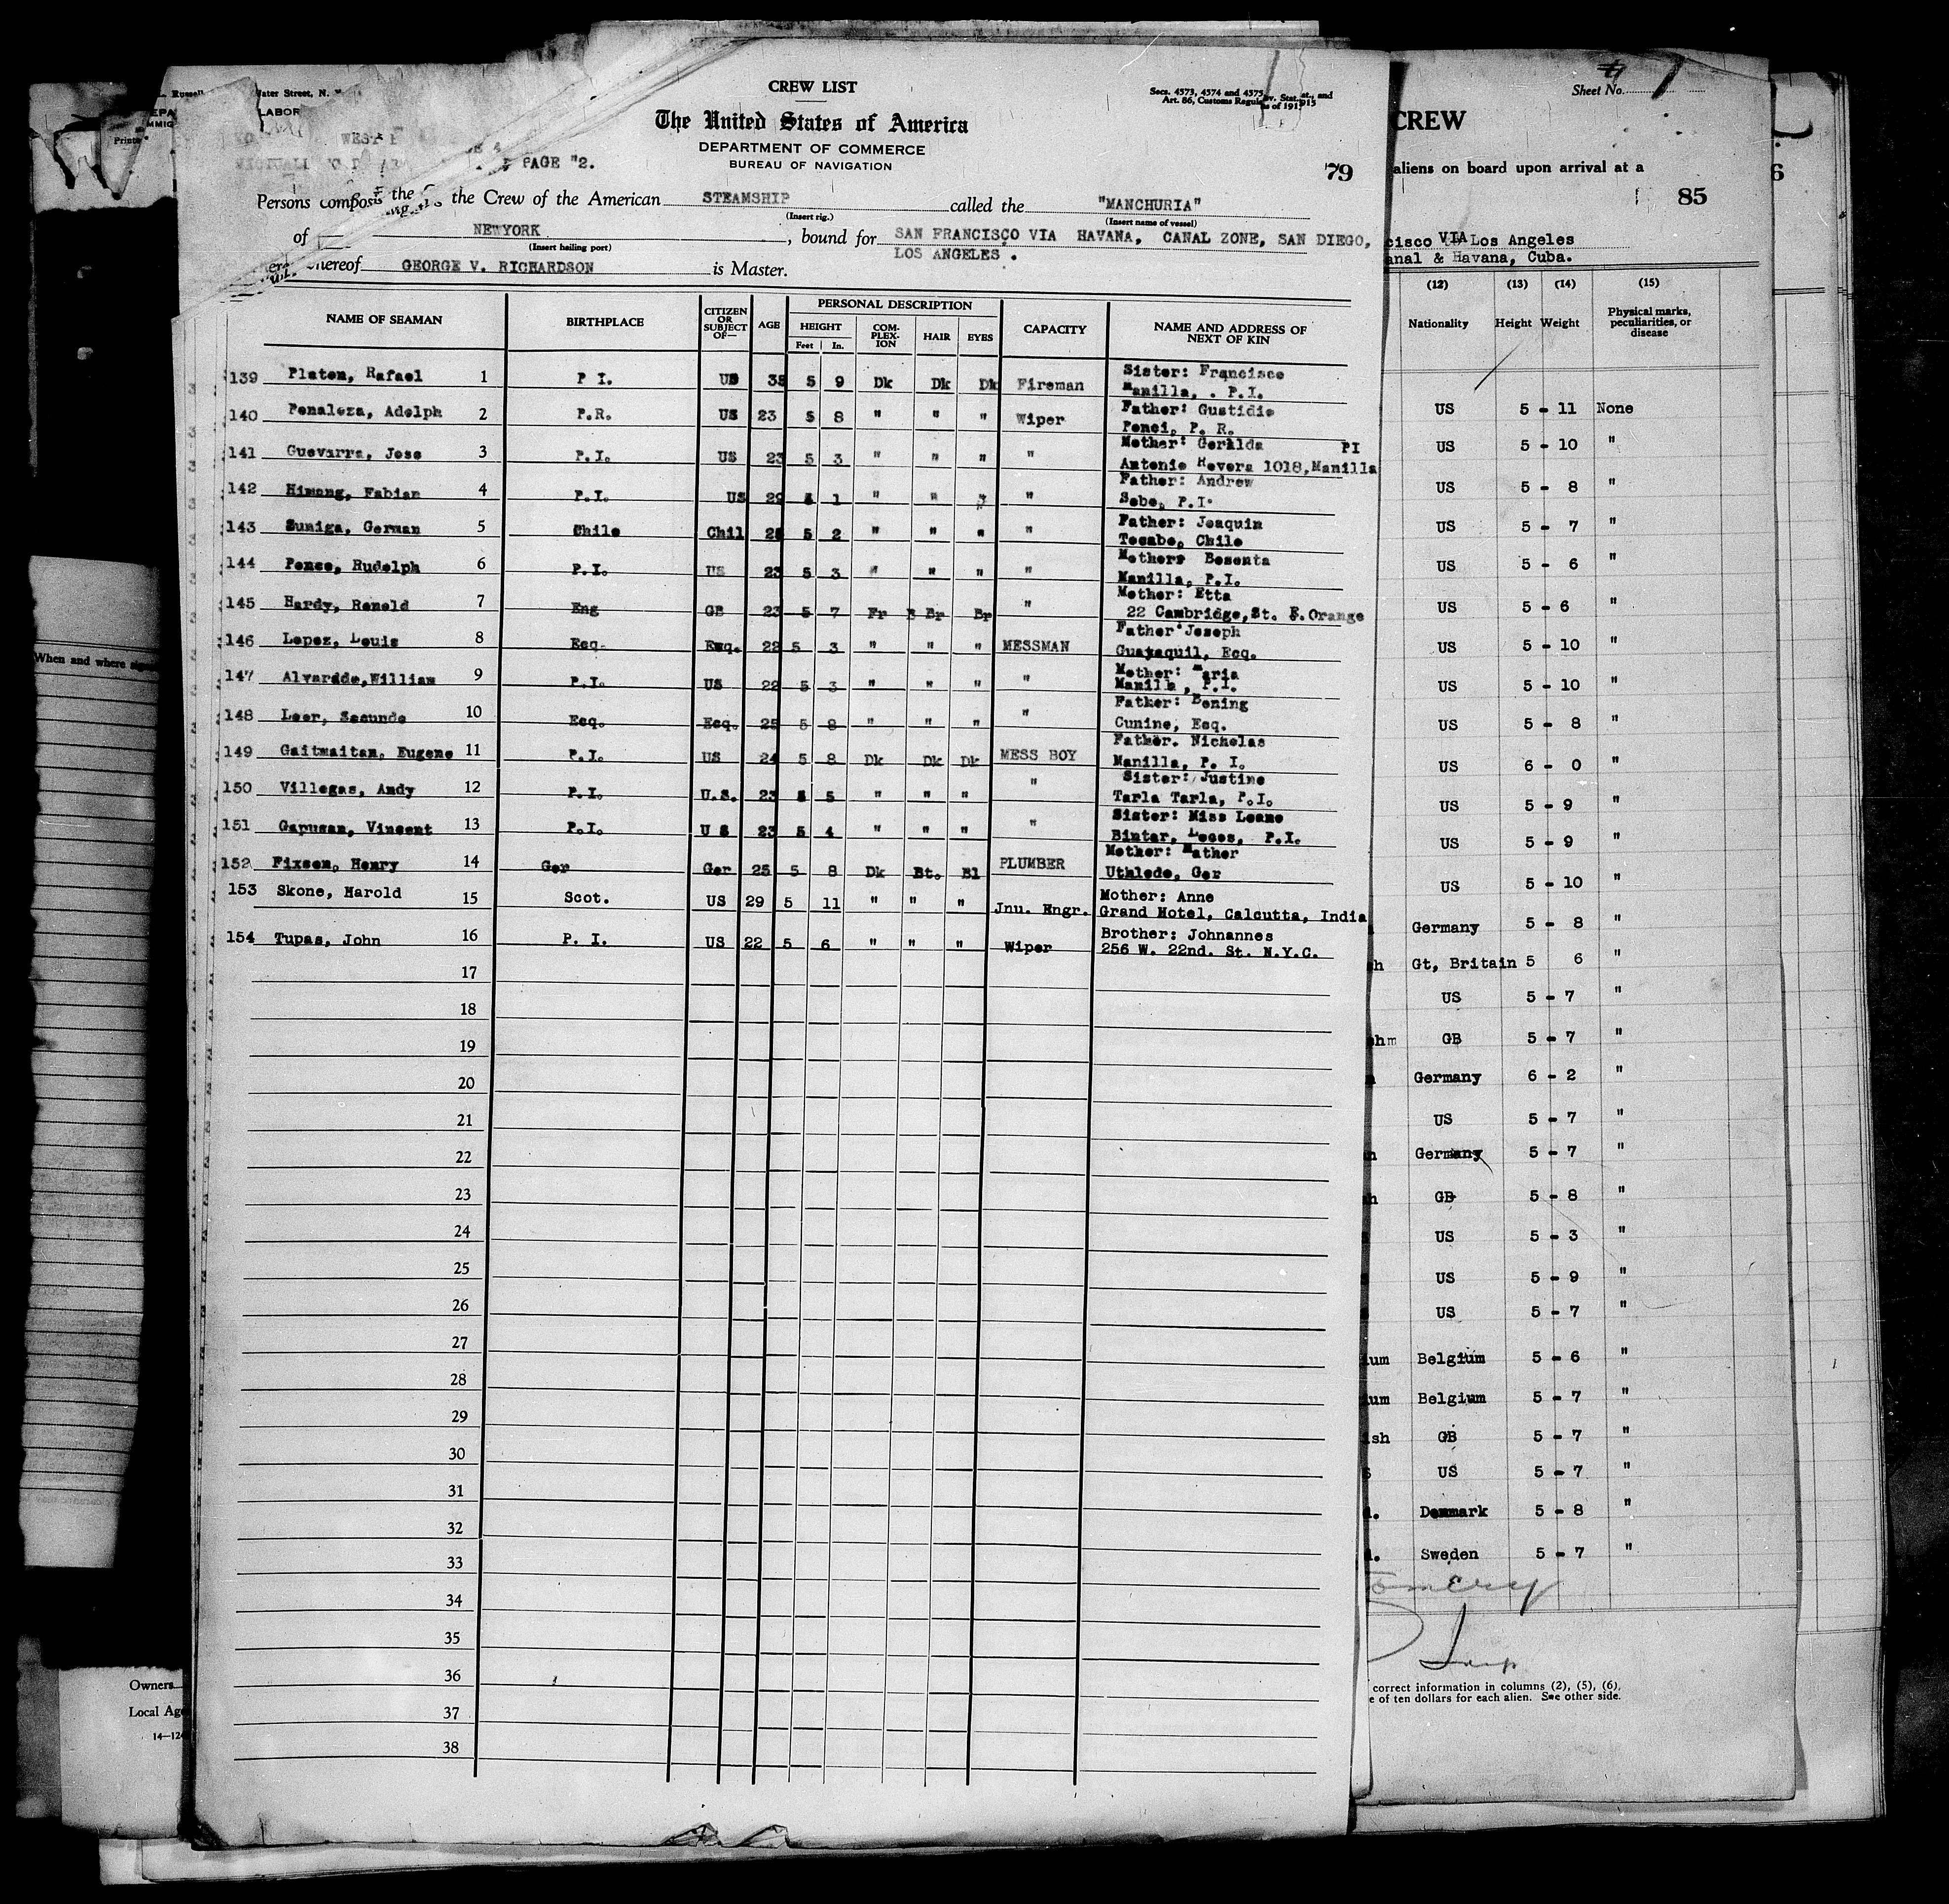 CREW LIST
Secs. 4573, 4574 and 4575
Art. 86, Customs
The United States of America
DEPARTMENT OF COMMERCE
BUREAU OF NAVIGATION
PAGE "2.
79
the Crew of the American STEAMSHIP called the "MANCHURIA"
(Insert rig.) (Insert name of vessel)
of NEWYORK, bound for SAN FRANCISCO VIA HAVANA, CANAL ZONE, SAN DIEGO,
(Insert hailing port) LOS ANGELES .
GEORGE V. RICHARDSON is Master.
PERSONAL DESCRIPTION
NAME OF SEAMAN BIRTHPLACE CITIZEN OR SUBJECT OF— AGE HEIGHT COM-PLEX-ION HAIR EYES CAPACITY NAME AND ADDRESS OF NEXT OF KIN
Feet In.
139 Platon, Rafael 1 P I. US 5 9 Dk Dk Dk Fireman Sister: Francisco
Manilla, . P.I.
140 Penaloza, Adolph 2 P.R. US 23 5 8 " " " Wiper Father: Gustidio
Ponci, P. R.
141 Guevarra, Jose 3 P.I. US 23 5 3 " " " " Mother: Geralda PI
Antonio Revera 1018,Manilla
142 Himong, Fabian 4 P.I. US 29 1 " " " " Father: Andrew
Sebo, P.I.
143 Zuniga, German 5 Chile Chil 5 2 " " " " Father: Joaquin
Tocabo, Chile
144 Ponce, Rudolph 6 P.I. US 23 5 3 " " " " Mother: Besenta
Manilla, P.I.
145 Hardy, Ronold 7 Eng GB 23 5 7 Fr Br Br " Mother: Etta
22 Cambridge,St. E.Orange
146 Lopez, Louis 8 Ecq. Ecq. 22 5 3 " " " MESSMAN Father Joseph
Guayaquil, Ecq.
147 Alvarado,William 9 P.I. US 22 5 3 " " " " Mother: Maria
Manilla, P.I.
148 Loor, Secundo 10 Ecq. Ecq. 25 5 8 " " " " Father: Bening
Cunine, Ecq.
149 Gaitmaitan, Eugene 11 P.I. US 24 5 8 Dk Dk Dk MESS BOY Father. Nicholas
Manilla, P. I.
150 Villegas, Andy 12 P.I. U.S. 23 5 5 " " " " Sister: Justine
Tarla Tarla, P.I.
151 Gapusan, Vincent 13 P.I. U S 23 5 4 " " " " Sister: Miss Leane
Bintar, Locos, P.I.
152 Fixsen, Henry 14 Ger Ger 25 5 8 Dk Bt. Bl PLUMBER Mother: Mather
Uthlede, Ger
153 Skone, Harold 15 Scot. US 29 5 11 " " " Jnu. Engr. Mother: Anne
Grand Hotel, Calcutta, India
154 Tupas, John 16 P. I. US 22 5 6 " " " Wiper Brother: Johnannes
256 W. 22nd. St. N.Y.C.
17
18
19
20
21
22
23
24
25
26
27
28
29
30
31
32
33
34
35
36
37
38
Sheet No.
CREW
aliens on board upon arrival at a
85
cisco VIA Los Angeles
anal & Havana, Cuba.
(12) (13) (14) (15)
Nationality Height Weight Physical marks, peculiarities, or disease
US 5 - 11 None
US 5 - 10 "
US 5 - 8 "
US 5 - 7 "
US 5 - 6 "
US 5 - 6 "
US 5 - 10 "
US 5 - 10 "
US 5 - 8 "
US 6 - 0 "
US 5 - 9 "
US 5 - 9 "
US 5 - 10 "
Germany 5 - 8 "
Gt, Britain 5 6 "
US 5 - 7 "
GB 5 - 7 "
Germany 6 - 2 "
US 5 - 7 "
Germany 5 - 7 "
GB 5 - 8 "
US 5 - 3 "
US 5 - 9 "
US 5 - 7 "
ium Belgium 5 - 6 "
ium Belgium 5 - 7 "
ish GB 5 - 7 "
US 5 - 7 "
Denmark 5 - 8 "
Sweden 5 - 7 "
correct information in columns (2), (5), (6),
e of ten dollars for each alien. See other side.
Water Street, N.
LABOR
When and where
Owners
Local